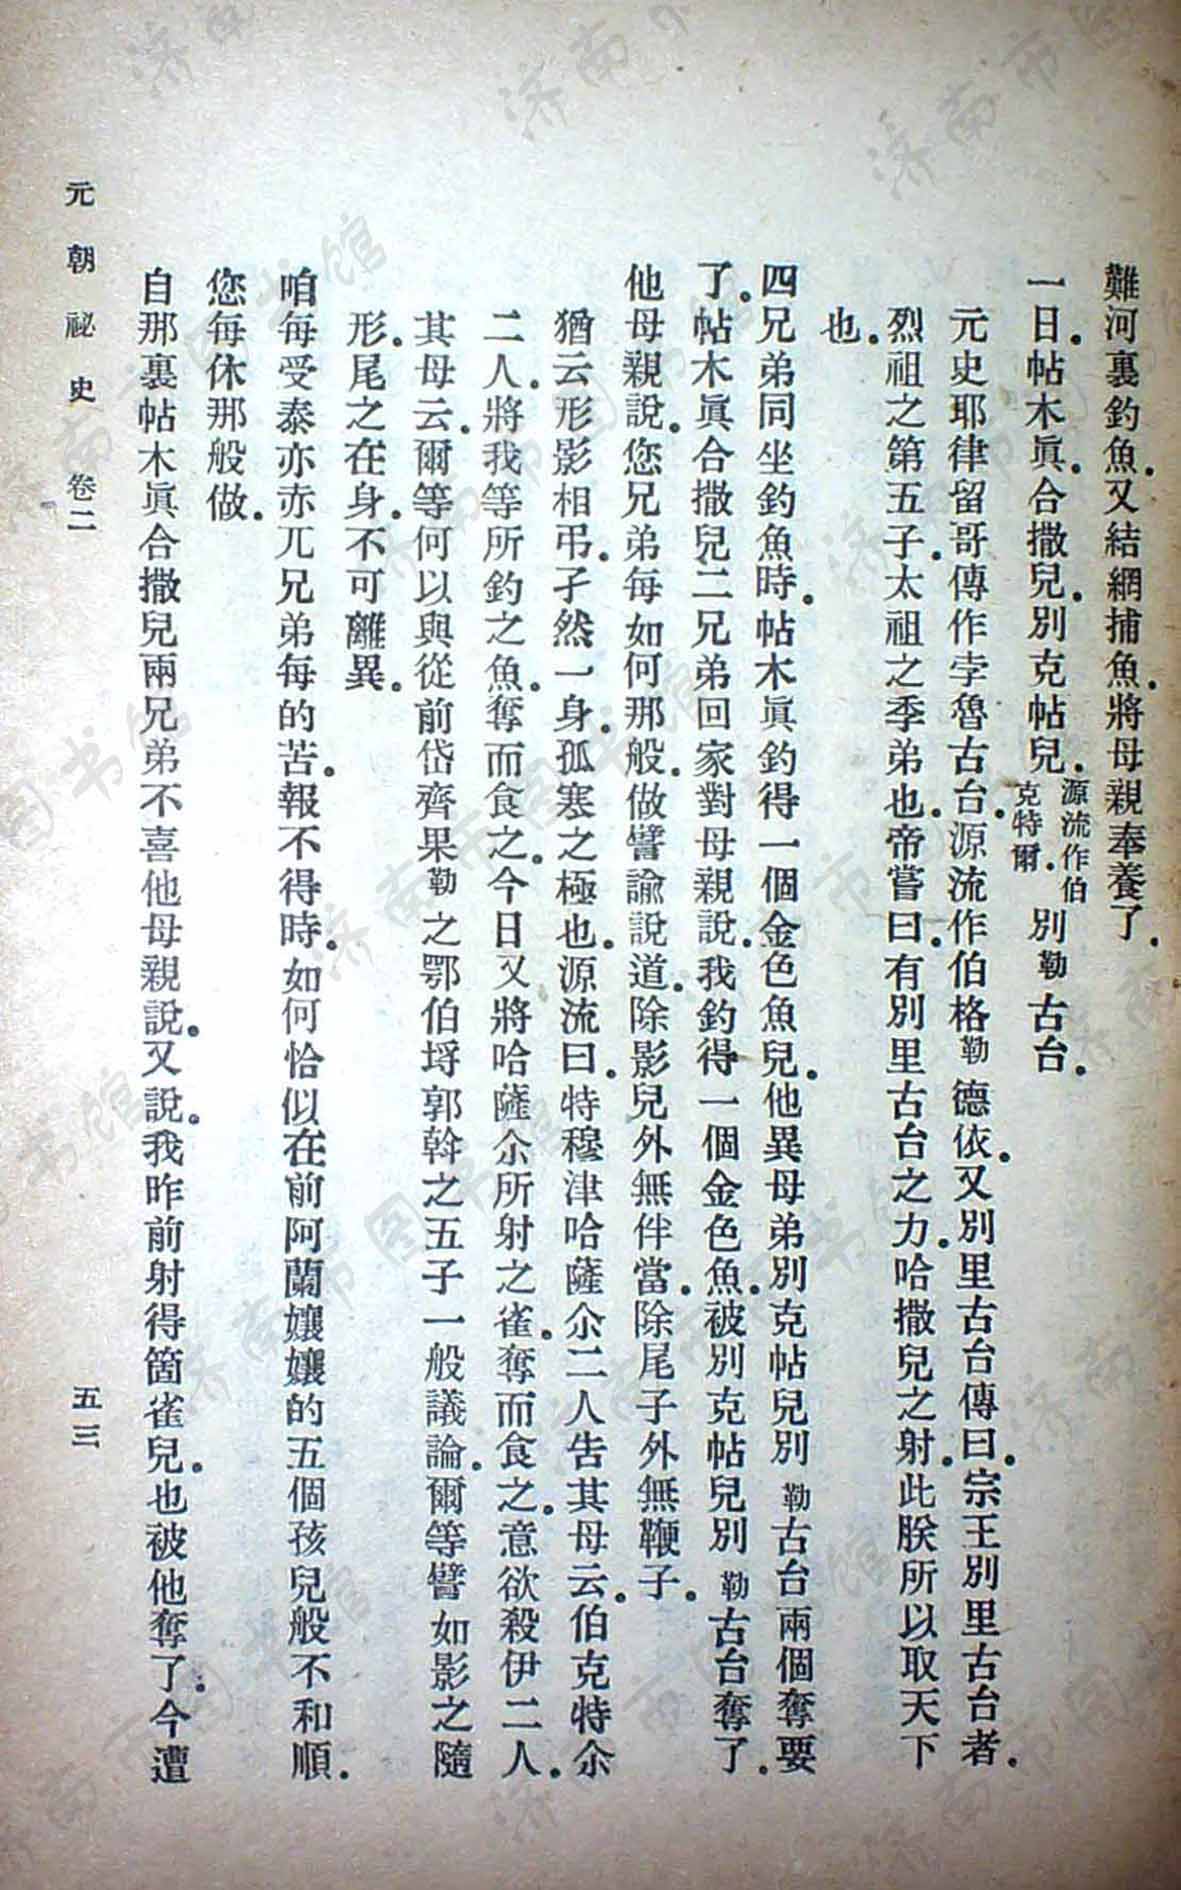 難河裏釣魚。又結網捕魚。將母親奉養了。
一日。帖木眞。合撒兒。別克帖兒。源流作伯克特爾。別勒古台。
元史耶律留哥傳作孛魯古台。源流作伯格勒德依。又別里古台傳曰。宗王別里古台者。
烈祖之第五子。太祖之季弟也。帝嘗曰。有別里古台之力。哈撒兒之射。此朕所以取天下
也。
四兄弟同坐釣魚時。帖木眞釣得一個金色魚兒。他異母弟別克帖兒別勒古台兩個奪要
了。帖木眞合撒兒二兄弟回家對母親說。我釣得一個金色魚。被別克帖兒別勒古台奪了。
他母親說。您兄弟每如何那般。做譬諭說道。除影兒外無伴當。除尾子外無鞭子。
猶云形影相弔。孑然一身。孤寒之極也。源流曰。特穆津哈薩尒二人告其母云。伯克特尒
二人。將我等所釣之魚。奪而食之。今日又將哈薩尒所射之雀。奪而食之。意欲殺伊二人。
其母云。爾等何以與從前岱齊果勒之鄂伯埒郭斡之五子一般議論。爾等譬如影之隨
形。尾之在身。不可離異。
咱每受泰亦赤兀兄弟每的苦。報不得時。如何恰似在前阿蘭孃孃的五個孩兒般不和順。
您每休那般做。
自那裏帖木眞合撒兒兩兄弟不喜他母親說。又說。我昨前射得箇雀兒。也被他奪了。今遭
元朝祕史 卷二 五三
济南市图书馆